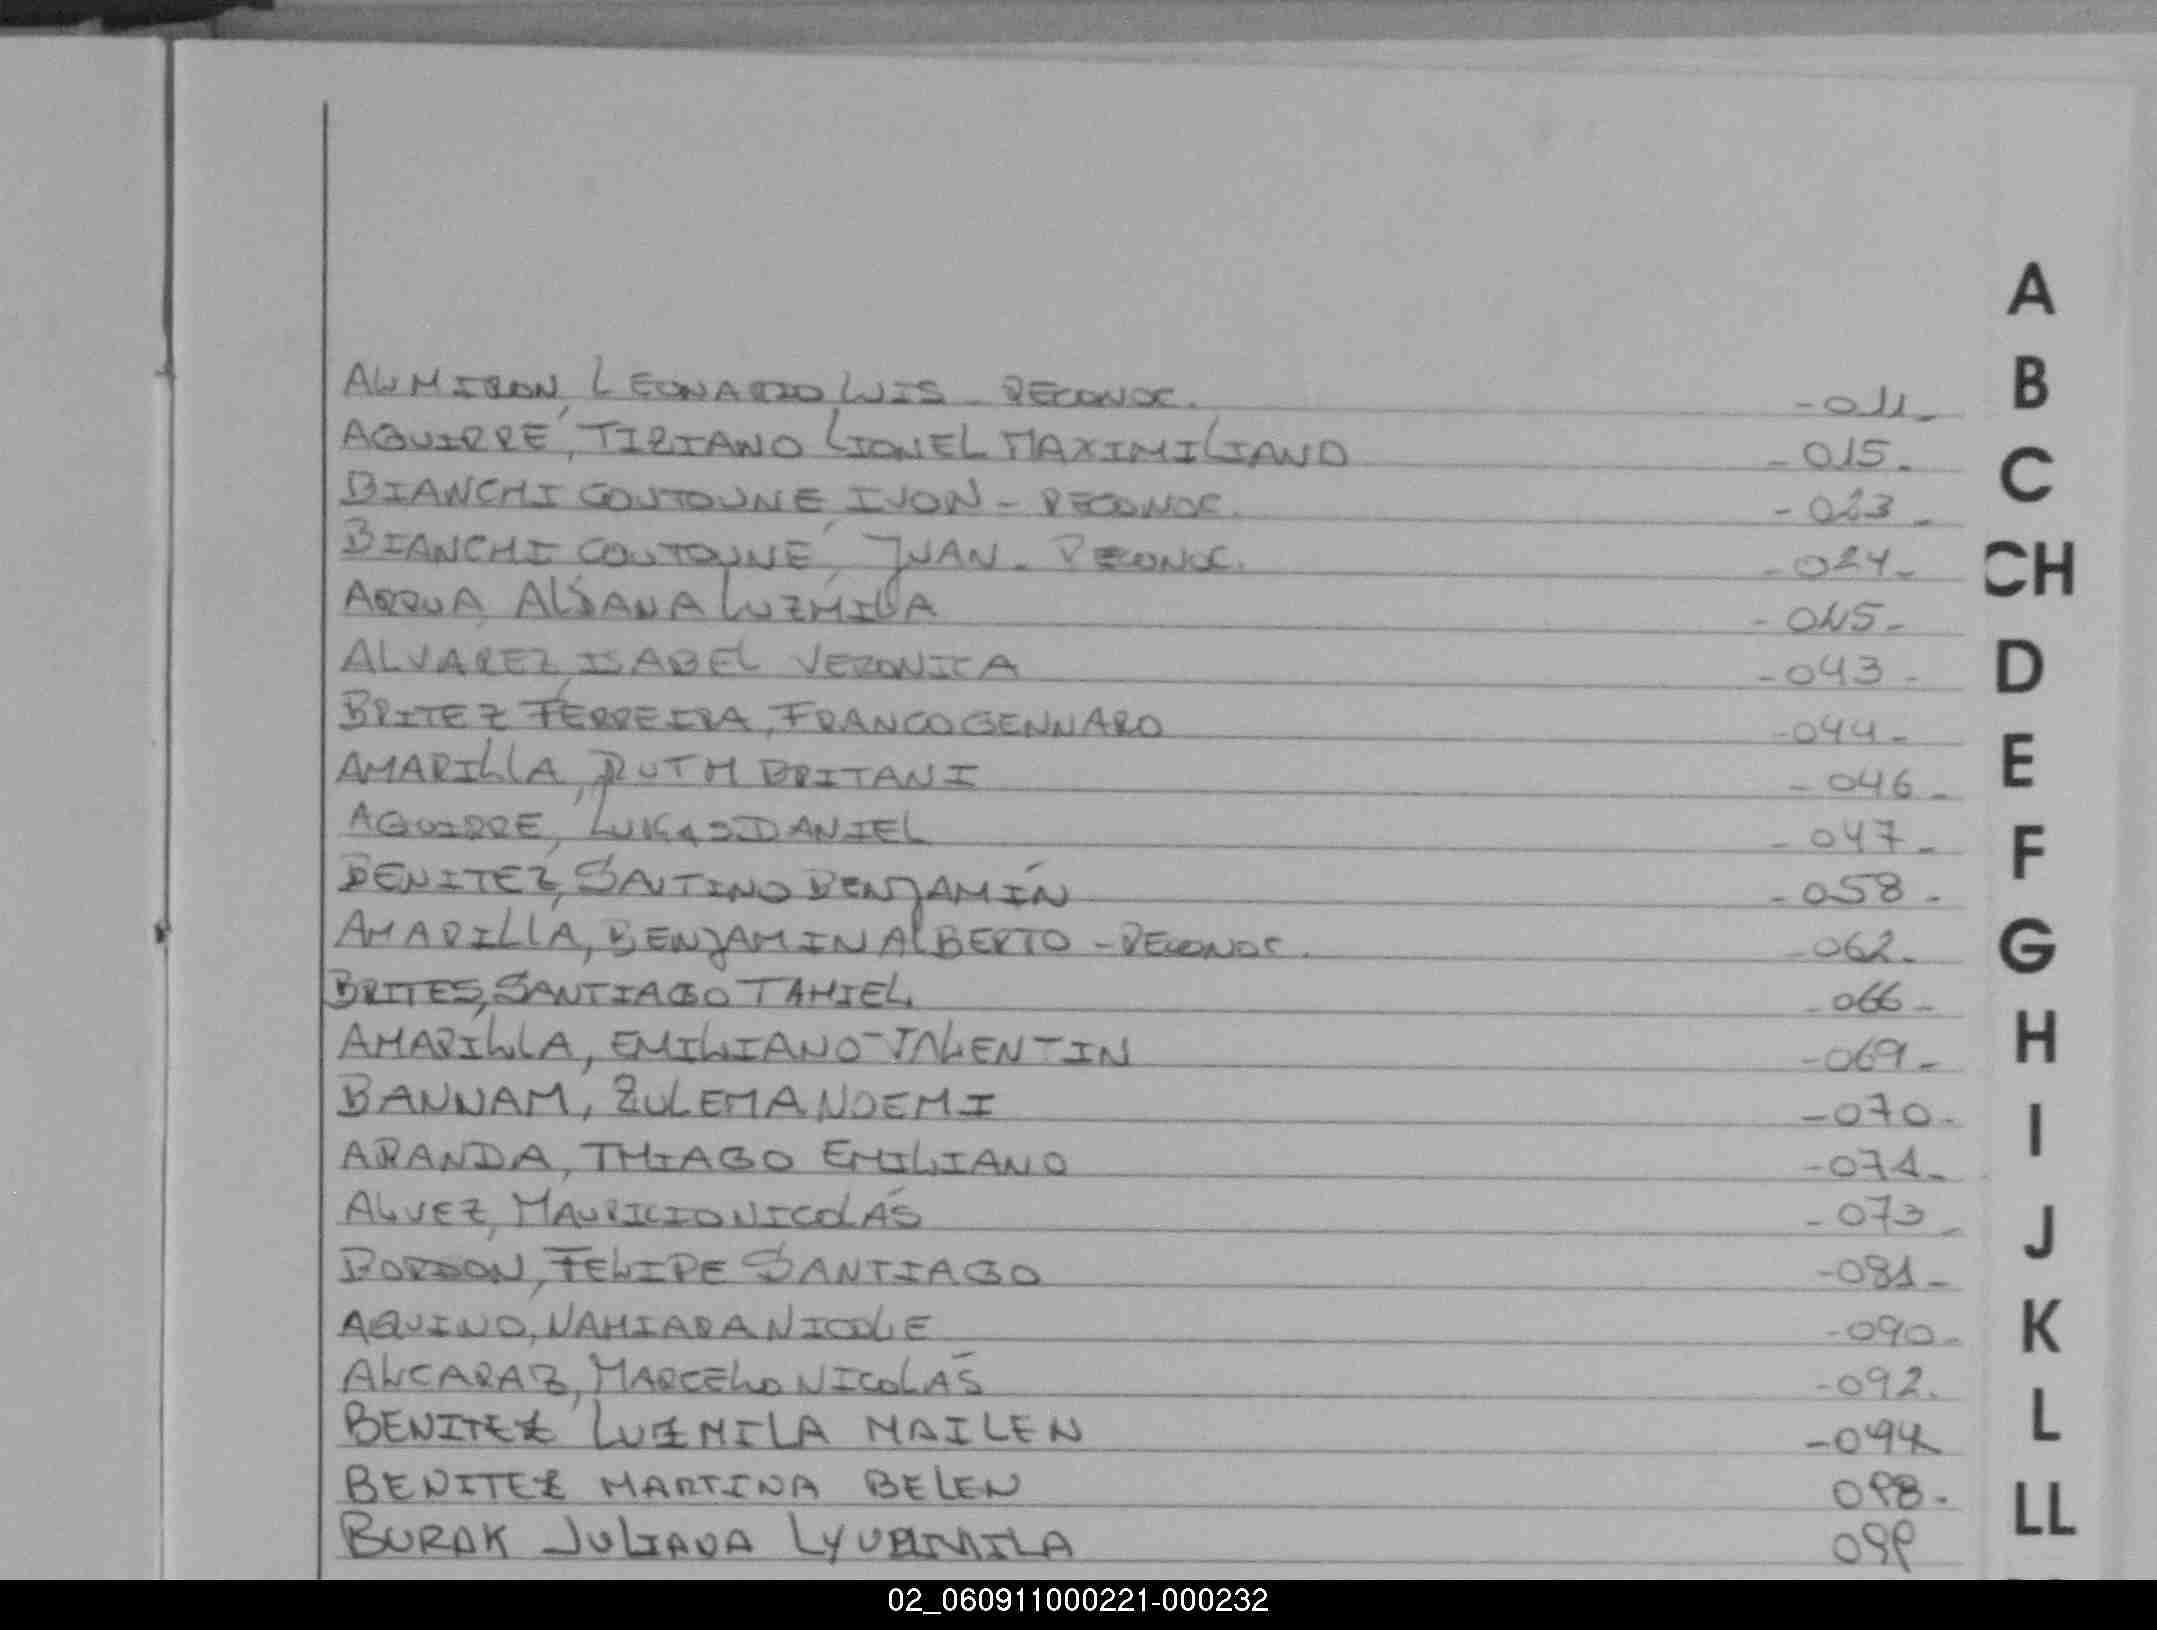 ALMIRON, LEONARDO LUIS - RECONOC. -011-
AGUIRRE, TIZIANO LIONEL MAXIMILIANO -015-
BIANCHI COUTOUNE, IVON - RECONOC. -023-
BIANCHI COUTOUNE, JUAN - RECONOC. -024-
ALDANA LUZMILA
ALVAREZ, ISABEL VERONICA -043-
BRITEZ FERREIRA, FRANCO GENNARO -044-
AMARILLA, RUTH BRITANI -046-
AGUIRRE, LUKAS DANIEL -047-
BENITEZ, SANTINO BENJAMÍN -058-
AMARILLA, BENJAMIN ALBERTO - RECONOC. -062-
BRITES, SANTIAGO TAHIEL -066-
AMARILLA, EMILIANO VALENTIN -069-
BANNAM, ZULEMA NOEMI -070-
ARANDA, THIAGO EMILIANO -071-
ALVEZ, MAURICIO NICOLÁS -073-
BORDON, FELIPE SANTIAGO -081-
AQUINO, NAHIARA NICOLE -090-
ALCARAZ, MARCELO NICOLÁS -092-
BENITEZ LUZMILA MAILEN -094
BENITEZ MARTINA BELEN 098-
BURAK JULIANA LYUDMILA 099
A
B
C
CH
D
E
F
G
H
I
J
K
L
LL
02_060911000221-000232